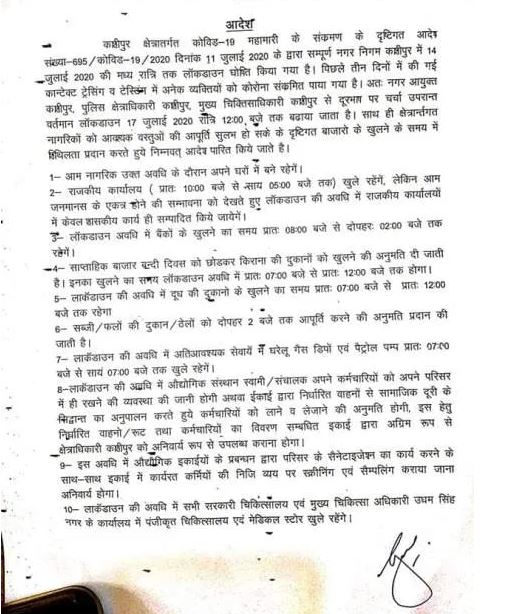 आदेश
काशीपुर क्षेत्रातर्गत कोविड-19 महामारी के संकमण के दृष्टिगत आदेश
संख्या-695/कोविड-19/2020 दिनांक 11 जुलाई 2020 के द्वारा सम्पूर्ण नगर निगम काशीपुर में 14
जुलाई 2020 की मध्य रात्रि तक लॉकडाउन घोषित किया गया है। पिछले तीन दिनों में की गई
कान्टेक्ट ट्रेसिंग व टेस्टिंग में अनेक व्यक्तियों को कोरोना संकमित पाया गया है। अतः नगर आयुक्त
काशीपुर, पुलिस क्षेत्राधिकारी काशीपुर, मुख्य चिकित्साधिकारी काशीपुर से दूरभाष पर चर्चा उपरान्त
वर्तमान लॉकडाउन 17 जुलाई 2020 रात्रि 12:00 बजे तक बढाया जाता है। साथ ही क्षेत्रान्तर्गत
नागरिकों को आवश्यक वस्तुओं की आपूर्ति सुलभ हो सके के दृष्टिगत बाजारो के खुलने के समय में
शिथिलता प्रदान करते हुये निम्नवत् आदेश पारित किये जाते है।
1- आम नागरिक उक्त अवधि के दौरान अपने घरों में बने रहेगें।
2- राजकीय कार्यालय ( प्रातः 10:00 बजे से साय 05:00 बजे तक) खुले रहेगें, लेकिन आम
जनमानस के एकत्र होने की सम्भावना को देखते हुए लॉकडाउन की अवधि में राजकीय कार्यालयों
में केवल शासकीय कार्य ही सम्पादित किये जायेगें।
3- लॉकडाउन अवधि में बैंकों के खुलने का समय प्रातः 08:00 बजे से दोपहरः 02:00 बजे तक
रहेगें।
4- साप्ताहिक बाजार बन्दी दिवस को छोडकर किराना की दुकानों को खुलने की अनुमति दी जाती
है। इनका खुलने का समय लॉकडाउन अवधि में प्रातः 07:00 बजे से प्रातः 12:00 बजे तक होगा।
5- लाकॅडाउन की अवधि में दूध की दुकानो के खुलने का समय प्रातः 07:00 बजे से प्रातः 12:00
बजे तक रहेगा
6- सब्जी/फलों की दुकान/ठेलों को दोपहर 2 बजे तक आपूर्ति करने की अनुमति प्रदान की
जाती है।
7- लाकॅडाउन की अवधि में अतिआवश्यक सेवायें में घरेलू गैस डिपों एवं पैट्रोल पम्प प्रातः 07:00
बजे से सायं 07:00 बजे तक खुले रहेगें।
8-लाकॅडाउन की अवधि में औद्योगिक संस्थान स्वामी/संचालक अपने कर्मचारियों को अपने परिसर
में ही रखने की व्यवस्था की जानी होगी अथवा ईकाई द्वारा निर्धारित वाहनों से सामाजिक दूरी के
सिद्वान्त का अनुपालन करते हुये कर्मचारियों को लाने व लेजाने की अनुमति होगी, इस हेतु
निर्धारित वाहनो/रूट तथा कर्मचारियों का विवरण सम्बधित इकाई द्वारा अग्रिम रूप से
क्षेत्राधिकारी काशीपुर को अनिवार्य रूप से उपलब्ध कराना होगा।
9- इस अवधि में औद्योगिक इकाईयों के प्रबन्धन द्वारा परिसर के सैनेटाइजेशन का कार्य करने के
साथ-साथ इकाई में कार्यरत कर्मियों की निजि व्यय पर स्क्रीनिंग एवं सैम्पलिंग कराया जाना
अनिवार्य होगा।
10- लाकॅडाउन की अवधि में सभी सरकारी चिकित्सालय एवं मुख्य चिकित्सा अधिकारी उधम सिंह
नगर के कार्यालय में पंजीकृत चिकित्सालय एवं मेडिकल स्टोर खुले रहेंगे।